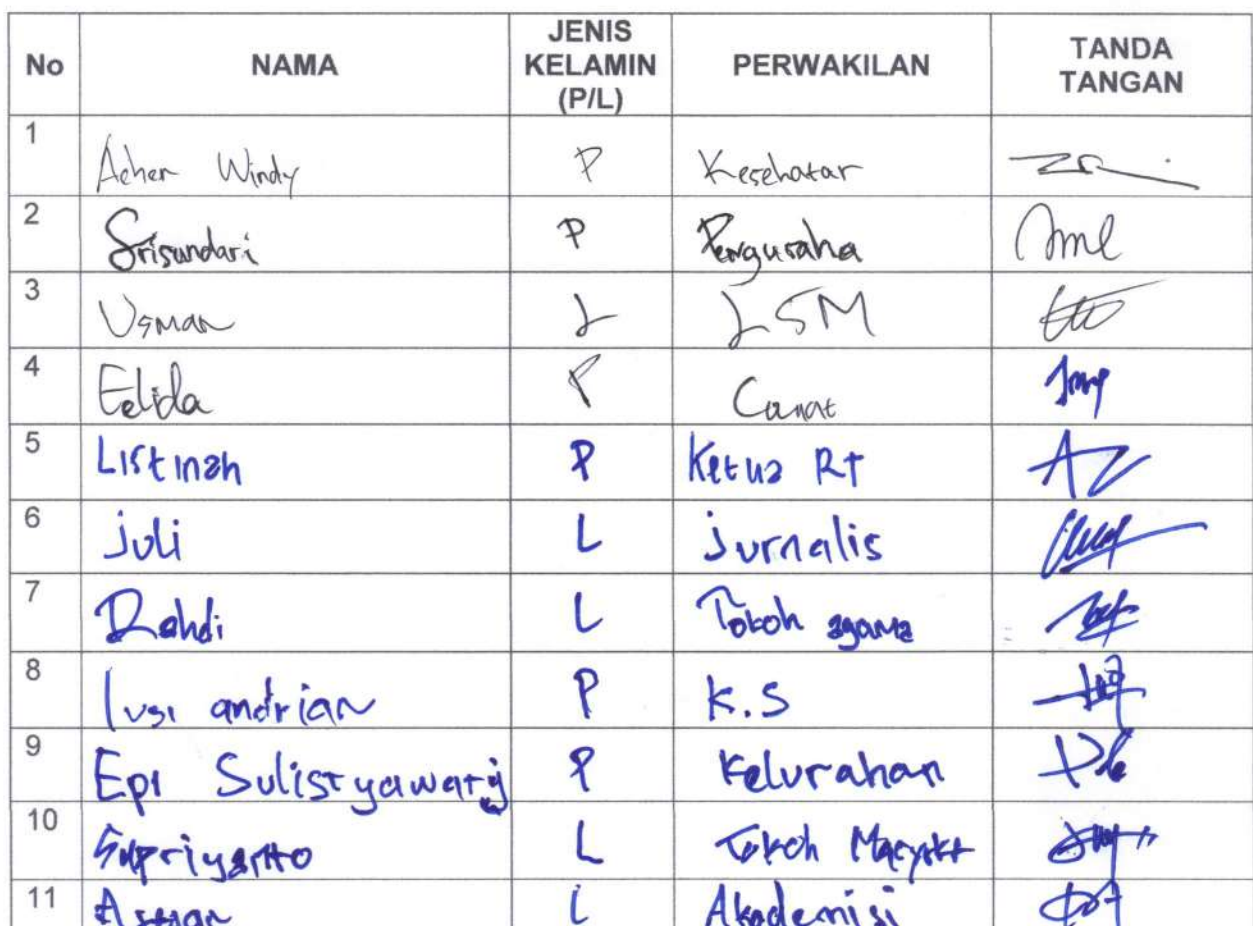 No NAMA JENIS KELAMIN (P/L) PERWAKILAN TANDA TANGAN
1 Windy P Kesehatan
2 Srisundari P Pengusaha
3 Usman L LSM
4 Eelida P Camat
5 Listinah P Ketua RT
6 juli L jurnalis
7 L Tokoh agama
8 andrian P K.S
9 Epi Sulistyawati P Kelurahan
10 Supriyanto L Tokoh
11 L Akademisi